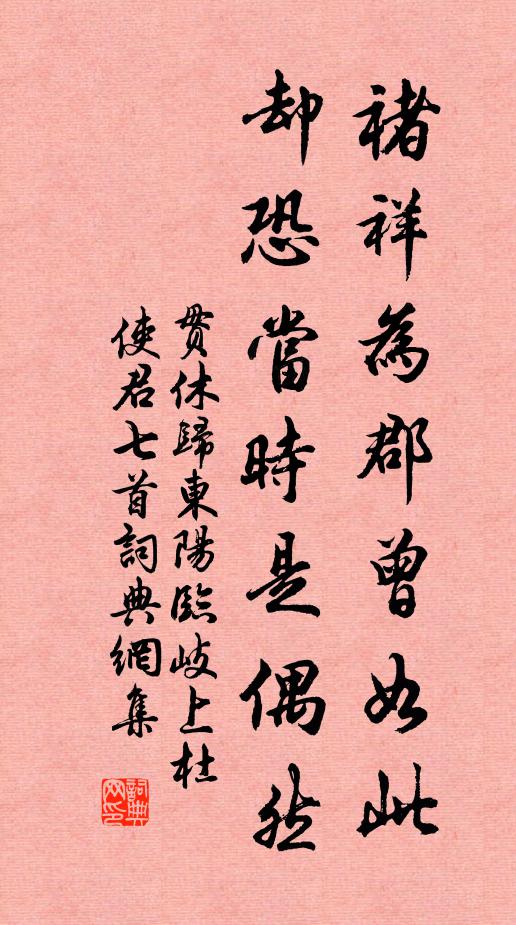 褚祥為郡曾如此
却恐當時是偶然
貫休歸東陽臨岐上杜
使君七首詞典網集
詞典
网印